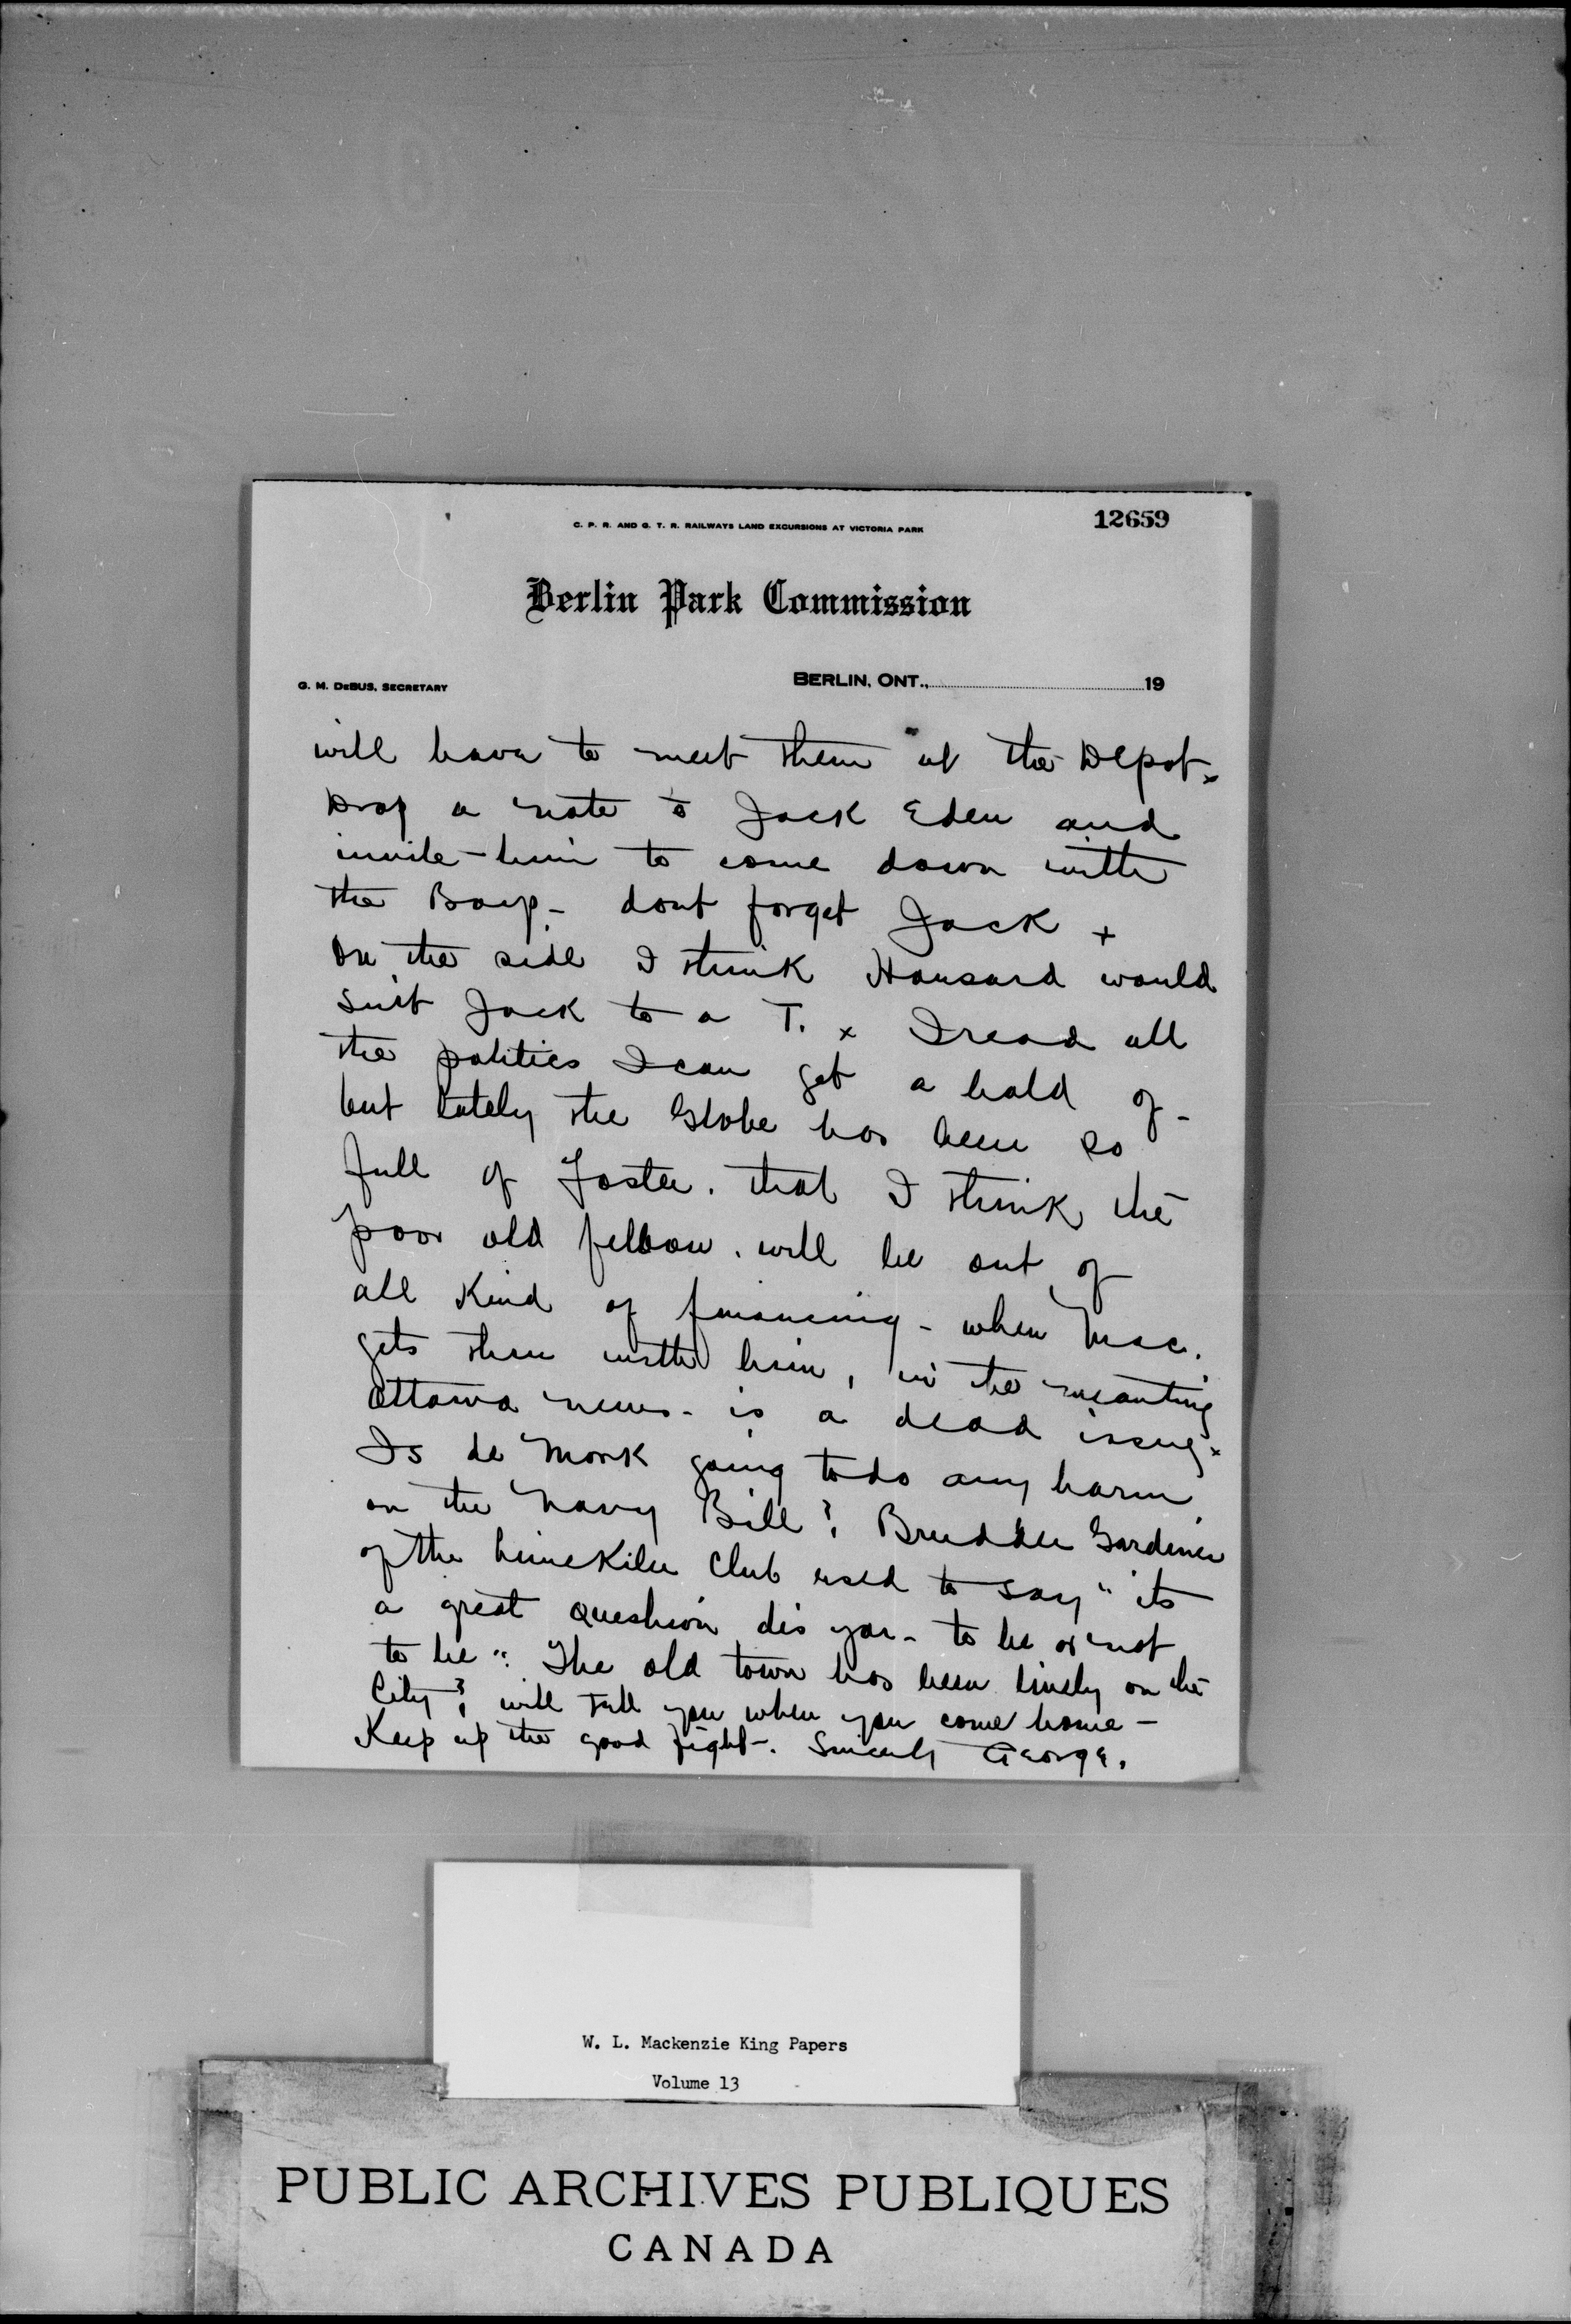 C. P. R. AND G. T. R. RAILWAYS LAND EXCURSIONS AT VICTORIA PARK
12659
Berlin Park Commission
G. M. DeBUS, SECRETARY
BERLIN, ONT., 19
will have to meet them at the Depot x
Drop a note to Jack Eden and
invite him to come down with
the Boys - dont forget Jack +
On the side I think Hansard would
suit Jack to a T. x I read all
the politics I can get a hold of -
but lately the Globe has been so
full of Foster. that I think the
poor old fellow. will be out of
all kind of financing - when Mac.
gets thru with him, in the meantime
Ottawa news - is a dead issue x
Is de Monk going to do any harm
on the Navy Bill? Brudder Gardener
of the Limekiln Club used to say "its
a great question dis yar - to be or not
to be". The old town has been lively on the
City? will tell you when you come home -
Keep up the good fight -. Sincerely George.
W. L. Mackenzie King Papers
Volume 13
PUBLIC ARCHIVES PUBLIQUES
CANADA